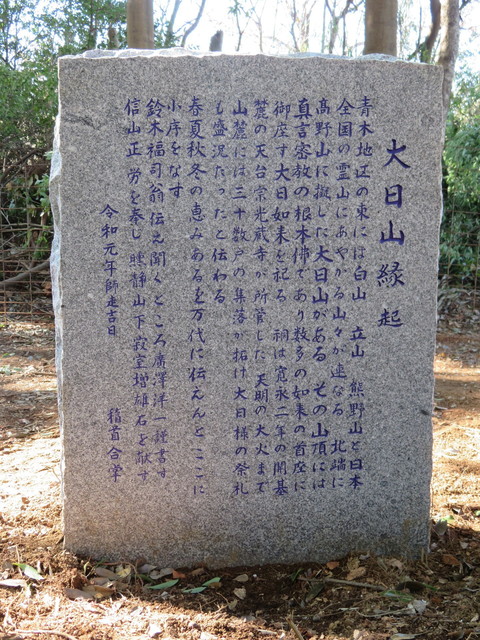 大日山縁起
青木地区の東には白山 立山 熊野山と日本
全国の霊山にあやかる山々が連なる 北端に
高野山に擬した大日山がある その山頂には
真言密教の根本佛であり数多の如来の首座に
御座す大日如来を祀る 祠は寛永二年の開基
麓の天台宗光蔵寺が所管した 天明の大火まで
山麓には三十数戸の集落が拓け大日様の祭礼
も盛況だったと伝わる
春夏秋冬の恵みあるを万代に伝えんとここに
小序をなす
鈴木福司翁伝え聞くところ廣澤洋一謹書す
信山正 労を奉し 睡静山下寂室増雄石を献す
令和元年師走吉日
稽首合掌